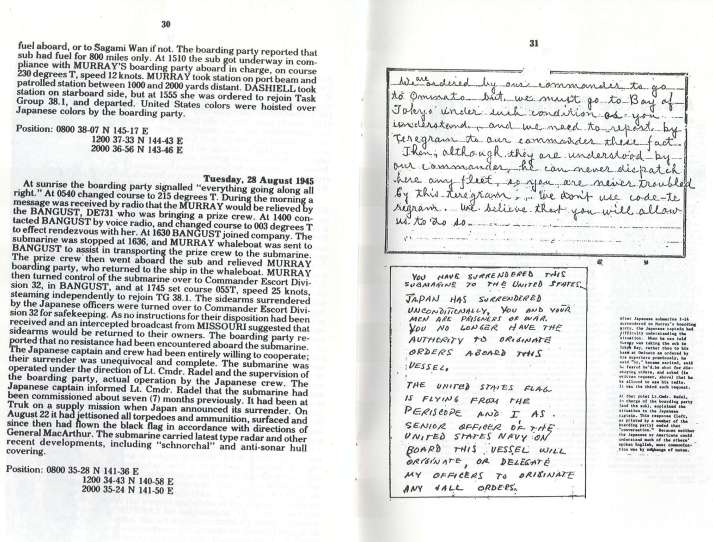 30
fuel aboard, or to Sagami Wan if not. The boarding party reported that
sub had fuel for 800 miles only. At 1510 the sub got underway in com-
pliance with MURRAY'S boarding party aboard in charge, on course
230 degrees T, speed 12 knots. MURRAY took station on port beam and
patrolled station between 1000 and 2000 yards distant. DASHIELL took
station on starboard side, but at 1555 she was ordered to rejoin Task
Group 38.1, and departed. United States colors were hoisted over
Japanese colors by the boarding party.
Position: 0800 38-07 N 145-17 E
1200 37-33 N 144-43 E
2000 36-56 N 143-46 E
Tuesday, 28 August 1945
At sunrise the boarding party signalled "everything going along all
right." At 0540 changed course to 215 degrees T. During the morning a
message was received by radio that the MURRAY would be relieved by
the BANGUST, DE731 who was bringing a prize crew. At 1400 con-
tacted BANGUST by voice radio, and changed course to 003 degrees T
to effect rendezvous with her. At 1630 BANGUST joined company. The
submarine was stopped at 1636, and MURRAY whaleboat was sent to
BANGUST to assist in transporting the prize crew to the submarine.
The prize crew then went aboard the sub and relieved MURRAY
boarding party, who returned to the ship in the whaleboat. MURRAY
then turned control of the submarine over to Commander Escort Divi-
sion 32, in BANGUST, and at 1745 set course 055T, speed 25 knots,
steaming independently to rejoin TG 38.1. The sidearms surrendered
by the Japanese officers were turned over to Commander Escort Divi-
sion 32 for safekeeping. As no instructions for their disposition had been
received and an intercepted broadcast from MISSOURI suggested that
sidearms would be returned to their owners. The boarding party re-
ported that no resistance had been encountered aboard the submarine.
The Japanese captain and crew had been entirely willing to cooperate;
their surrender was unequivocal and complete. The submarine was
operated under the direction of Lt. Cmdr. Radel and the supervision of
the boarding party, actual operation by the Japanese crew. The
Japanese captain informed Lt. Cmdr. Radel that the submarine had
been commissioned about seven (7) months previously. It had been at
Truk on a supply mission when Japan announced its surrender. On
August 22 it had jettisoned all torpedoes and ammunition, surfaced and
since then had flown the black flag in accordance with directions of
General MacArthur. The submarine carried latest type radar and other
recent developments, including "schnorchel" and anti-sonar hull
covering.
Position: 0800 35-28 N 141-36 E
1200 34-43 N 140-58 E
2000 35-24 N 141-50 E
31
We are ordered by our commander to go
to Ominato but we must go to Bay of
Tokyo under such condition as you
understand, and we need to report by
teregram to our commander these fact.
Then, although they are understood by
our commander, he can never dispatch
here any fleet, so you are never troubled
by this teregram, we don't use code-te
regram. We believe that you will allow
us to do so.
YOU HAVE SURRENDERED THIS
SUBMARINE TO THE UNITED STATES.
JAPAN HAS SURRENDERED
UNCONDITIONALLY, YOU AND YOUR
MEN ARE PRISONERS OF WAR.
YOU NO LONGER HAVE THE
AUTHORITY TO ORIGINATE
ORDERS ABOARD THIS
VESSEL.
THE UNITED STATES FLAG
IS FLYING FROM THE
PERISCOPE AND I AS
SENIOR OFFICER OF THE
UNITED STATES NAVY ON
BOARD THIS VESSEL WILL
ORIGINATE, OR DELEGATE
MY OFFICERS TO ORIGINATE
ANY & ALL ORDERS.